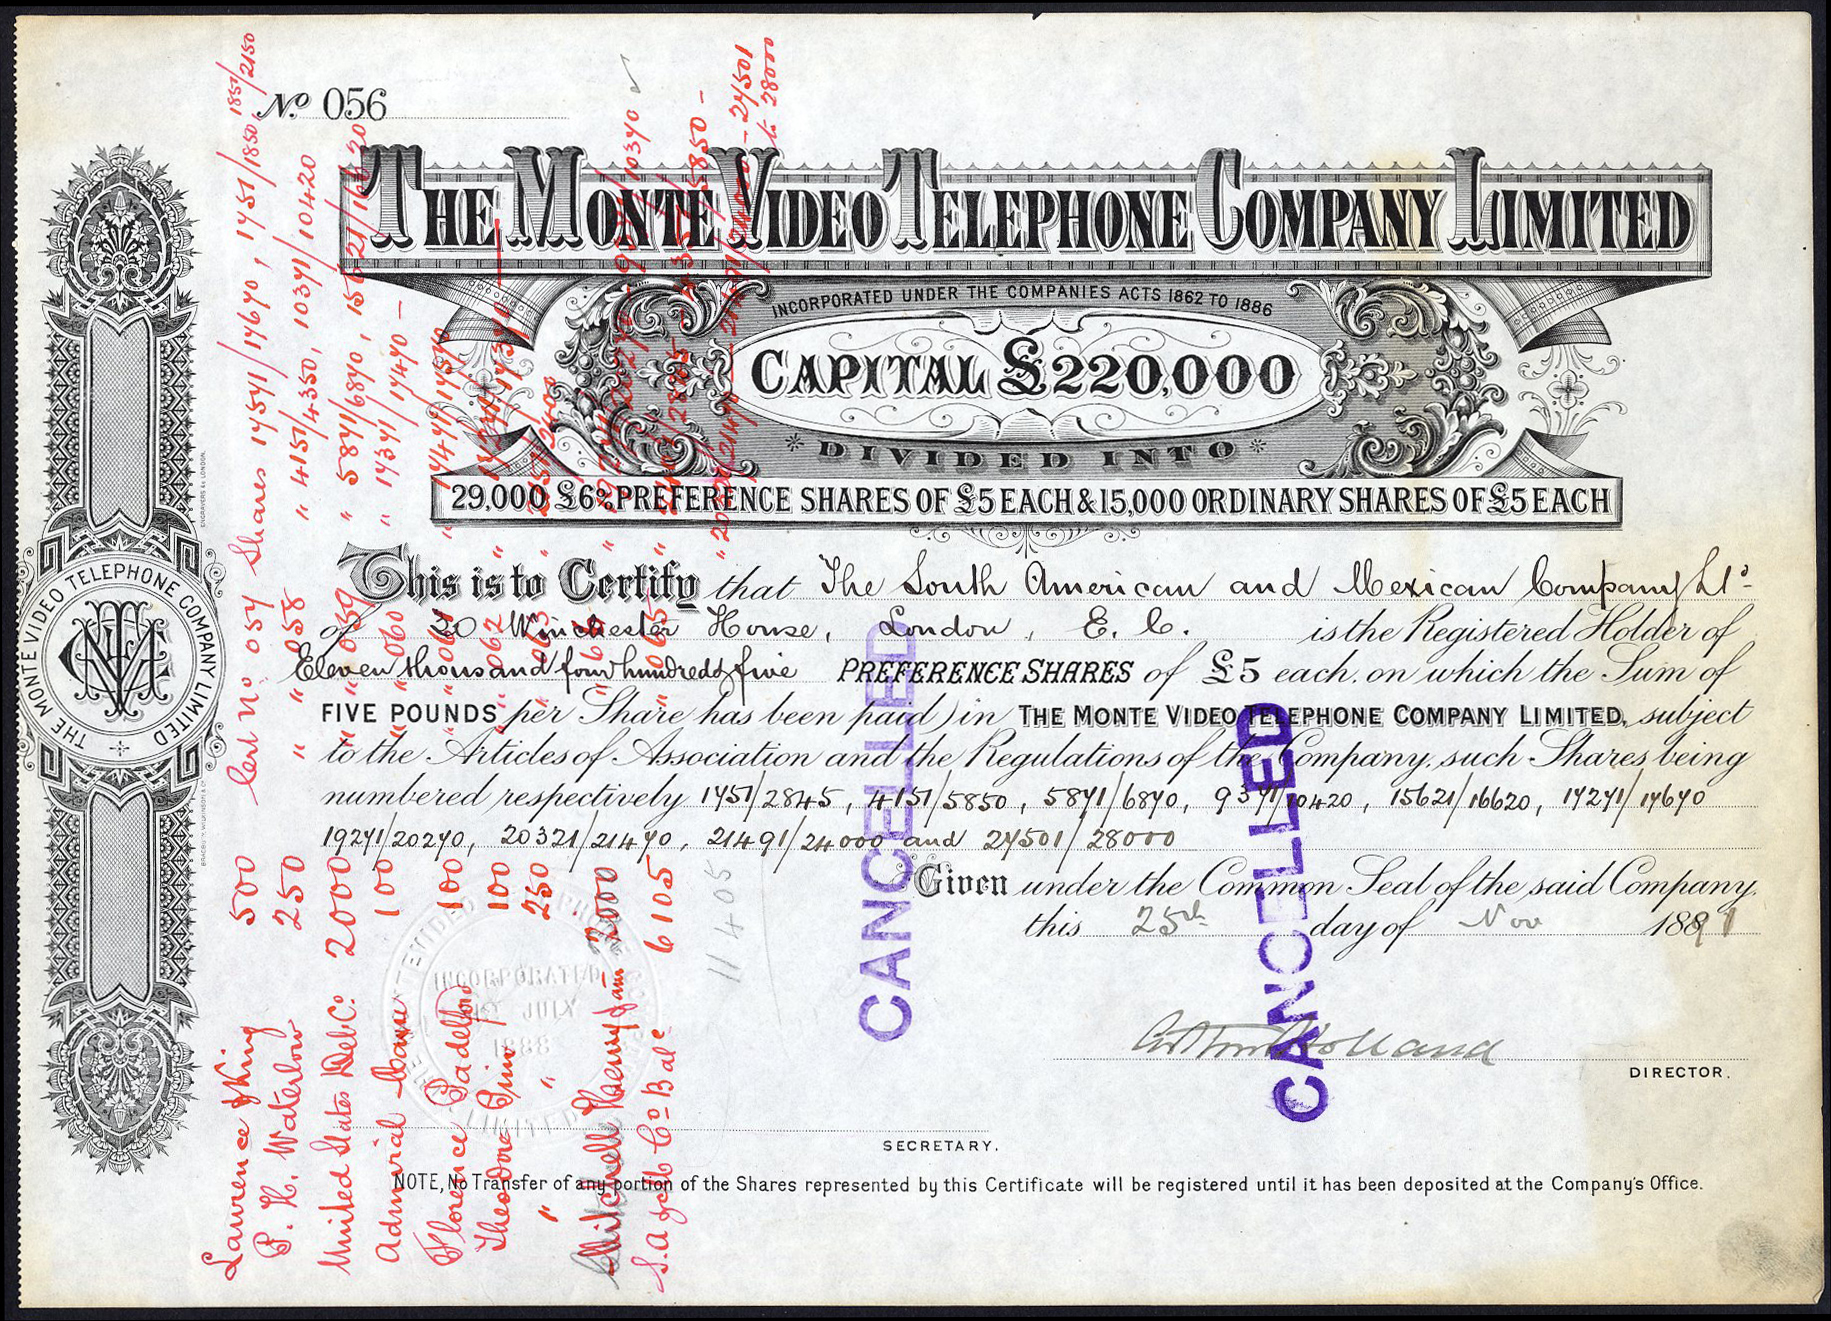 No. 056
THE MONTE VIDEO TELEPHONE COMPANY LIMITED
INCORPORATED UNDER THE COMPANIES ACTS 1862 TO 1886
CAPITAL £220,000
* DIVIDED INTO *
29,000 £6% PREFERENCE SHARES OF £5 EACH & 15,000 ORDINARY SHARES OF £5 EACH
This is to Certify that The South American and Mexican Company Ld
of 20 Winchester House, London, E.C. is the Registered Holder of
Eleven thousand four hundred & five PREFERENCE SHARES of £5 each, on which the Sum of
FIVE POUNDS per Share has been paid in THE MONTE VIDEO TELEPHONE COMPANY LIMITED, subject
to the Articles of Association and the Regulations of the Company, such Shares being
numbered respectively 1751/2845, 4151/5850, 5871/6870, 9371/10420, 15621/16620, 17271/17670
19271/20270, 20321/21470, 21491/24000 and 24501/28000
Given under the Common Seal of the said Company,
this 25th day of Nov 1891
DIRECTOR.
SECRETARY.
NOTE, No Transfer of any portion of the Shares represented by this Certificate will be registered until it has been deposited at the Company's Office.
CANCELLED
CANCELLED
11405
THE MONTE VIDEO TELEPHONE COMPANY LIMITED
INCORPORATED
JULY
1888
LIMITED
Lawrence King 500 Cert No 057 Shares 17571/17670, 1751/1850, 1851/2150
P. H. Waterlow 250 " " 058 " 4151/4350, 10371/10420
United States Deb Co. 2000 " " 059 " 5871/6870, 15621/16620
Admiral 100 " " 060 " 17371/17470
Florence 100
Theodore 100 " " 062
" " 250 " " 063
Mitchell Henry 2000
6105 " " 065
24501
28000